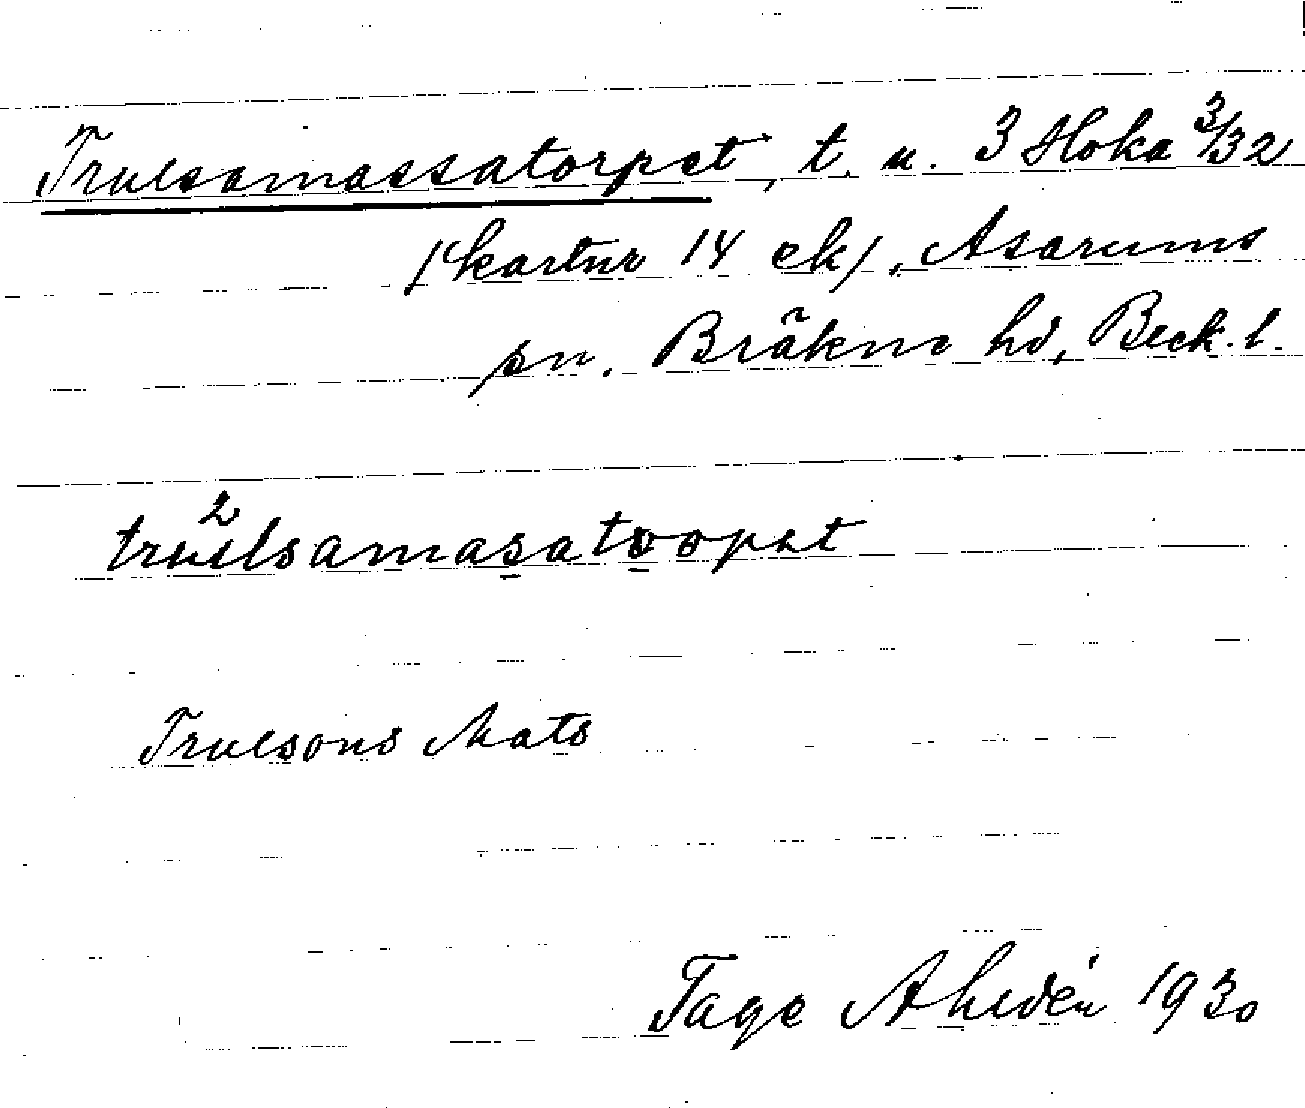 Trulsamassatorpet, t. u. 3 Hoka 3/32
/kartnr 14 ek/, Asarums
sn. Bräkne hd, Bleck. l.
tru²lsamasatoopet
Trulsons Mats
Tage Ahldén 1930